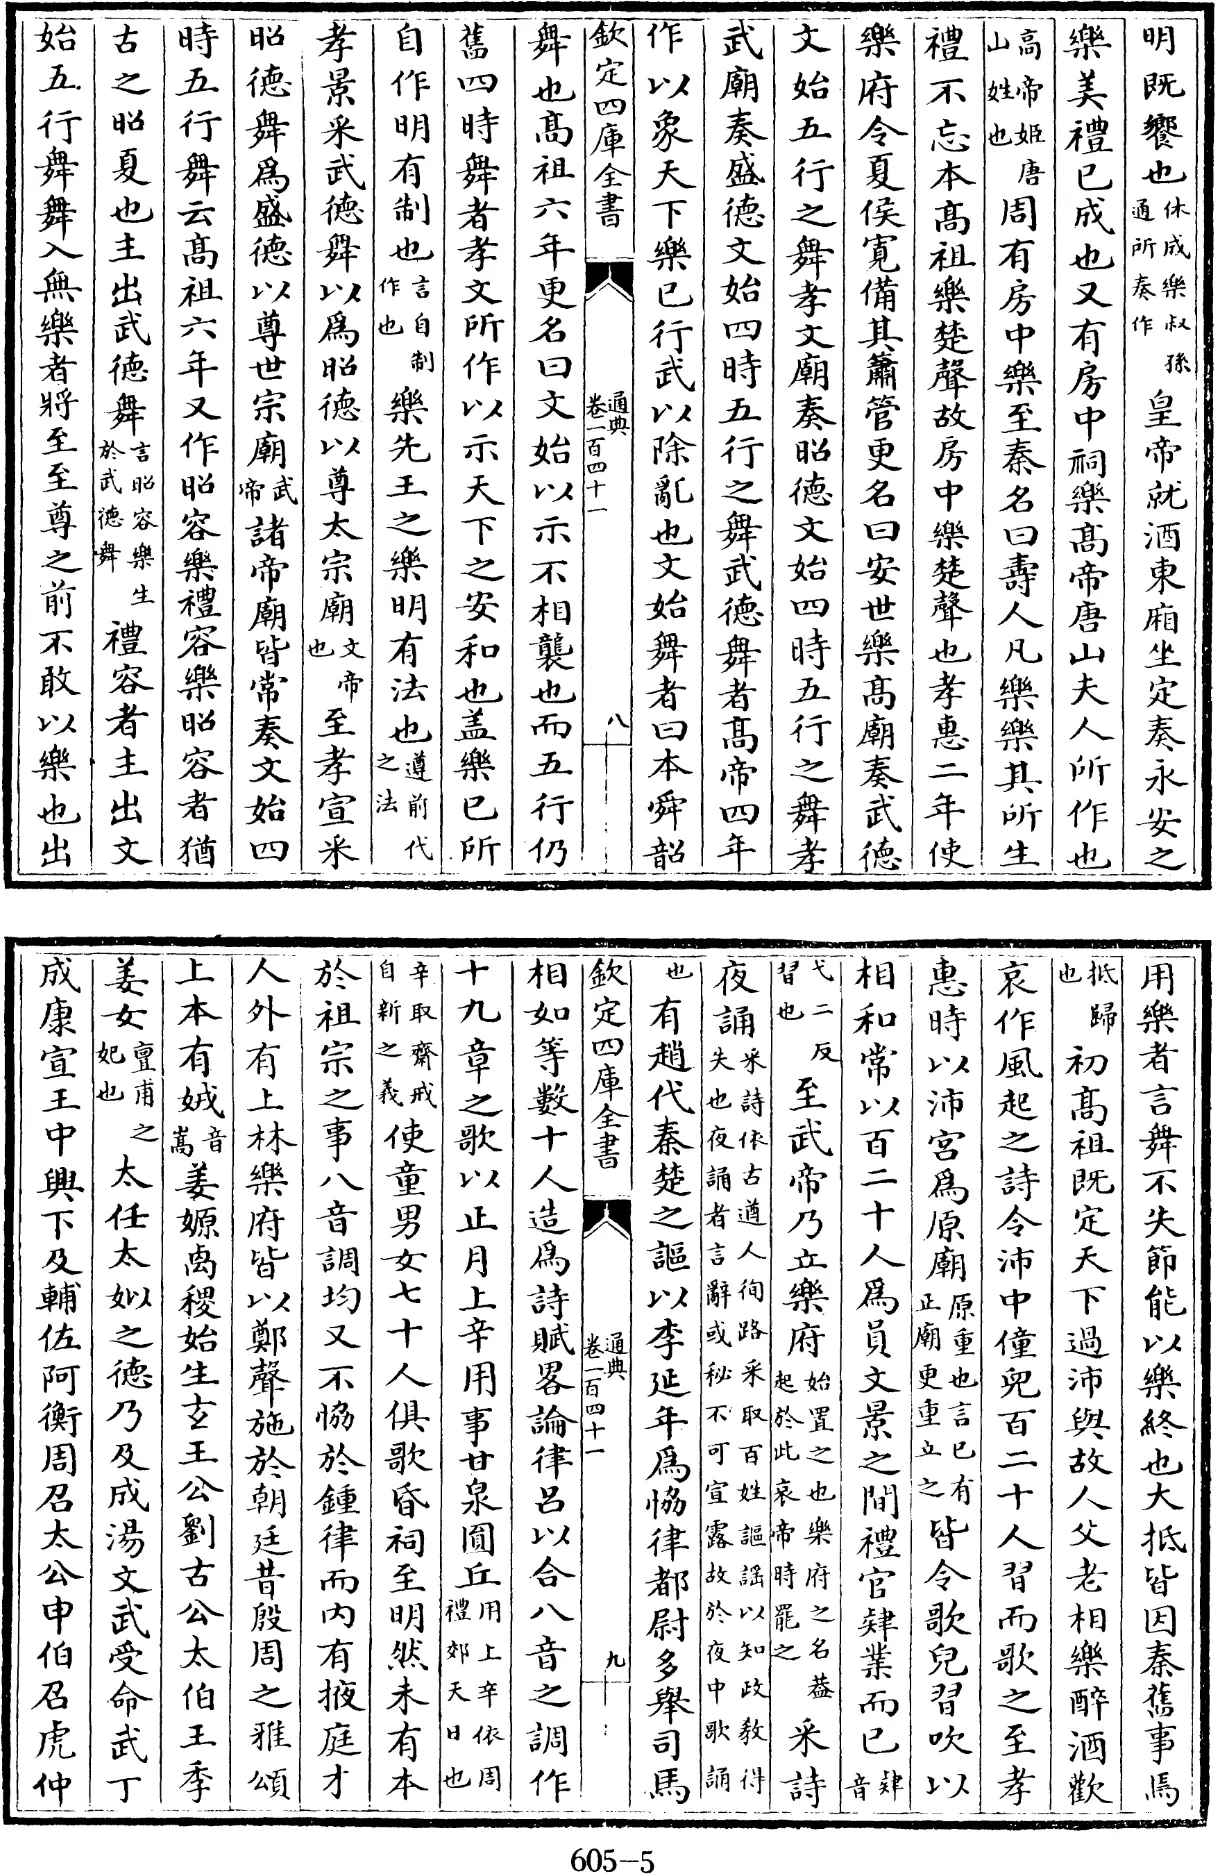 明既饗也休成樂叔孫通所奏作皇帝就酒東廂坐定奏永安之
樂美禮已成也又有房中祠樂髙帝唐山夫人所作也
高帝姬唐山姓也周有房中樂至秦名曰壽人凡樂樂其所生
禮不忘本髙祖樂楚聲故房中樂楚聲也孝惠二年使
樂府令夏侯寛備其簫管更名曰安世樂髙廟奏武德
文始五行之舞孝文廟奏昭德文始四時五行之舞孝
武廟奏盛德文始四時五行之舞武德舞者髙帝四年
作以象天下樂已行武以除亂也文始舞者曰本舜韶
欽定四庫全書 通典卷一百四十一 八
舞也髙祖六年更名曰文始以示不相襲也而五行仍
舊四時舞者孝文所作以示天下之安和也盖樂已所
自作明有制也言自制作也樂先王之樂明有法也遵前代之法
孝景采武德舞以為昭德以尊太宗廟文帝也至孝宣采
昭德舞為盛德以尊世宗廟武帝諸帝廟皆常奏文始四
時五行舞云髙祖六年又作昭容樂禮容樂昭容者猶
古之昭夏也主出武德舞言昭容樂生於武德舞禮容者主出文
始五行舞舞入無樂者將至至尊之前不敢以樂也出
用樂者言舞不失節能以樂終也大抵皆因秦舊事焉
抵歸也初髙祖既定天下過沛與故人父老相樂醉酒歡
哀作風起之詩令沛中僮兒百二十人習而歌之至孝
惠時以沛宮為原廟原重也言已有正廟更重立之皆令歌兒習吹以
相和常以百二十人為員文景之間禮官肄業而已肄音
弋二反習也至武帝乃立樂府始置之也樂府之名葢起於此哀帝時罷之采詩
夜誦采詩依古遒人徇路采取百姓謳謡以知政教得失也夜誦者言辭或秘不可宣露故於夜中歌誦
也有趙代秦楚之謳以李延年為恊律都尉多舉司馬
欽定四庫全書 通典卷一百四十一 九
相如等數十人造為詩賦畧論律吕以合八音之調作
十九章之歌以正月上辛用事甘泉圜丘用上辛依周禮郊天日也
辛取齋戒自新之義使童男女七十人俱歌昏祠至明然未有本
於祖宗之事八音調均又不恊於鍾律而内有掖庭才
人外有上林樂府皆以鄭聲施於朝廷昔殷周之雅頌
上本有娀音嵩姜嫄卨稷始生玄王公劉古公太伯王季
姜女亶甫之妃也太任太姒之德乃及成湯文武受命武丁
成康宣王中興下及輔佐阿衡周召太公申伯召虎仲
605-5